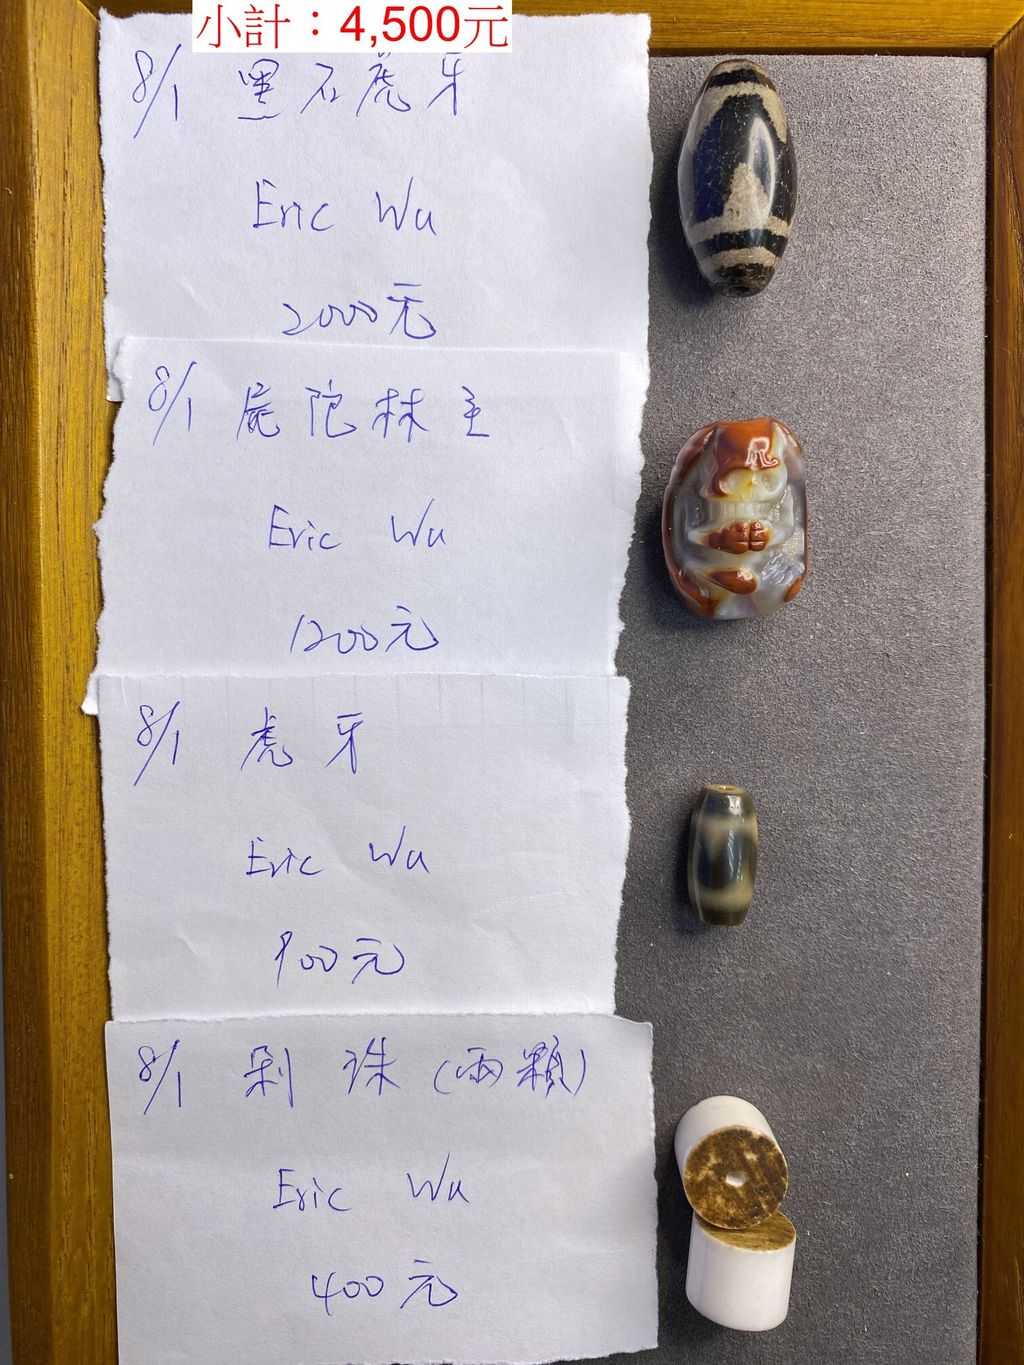 小計：4,500元
8/1 黑石虎牙
Eric Wu
2000元
8/1 屍陀林主
Eric Wu
1200元
8/1 虎牙
Eric Wu
900元
8/1 剁珠(兩顆)
Eric Wu
400元